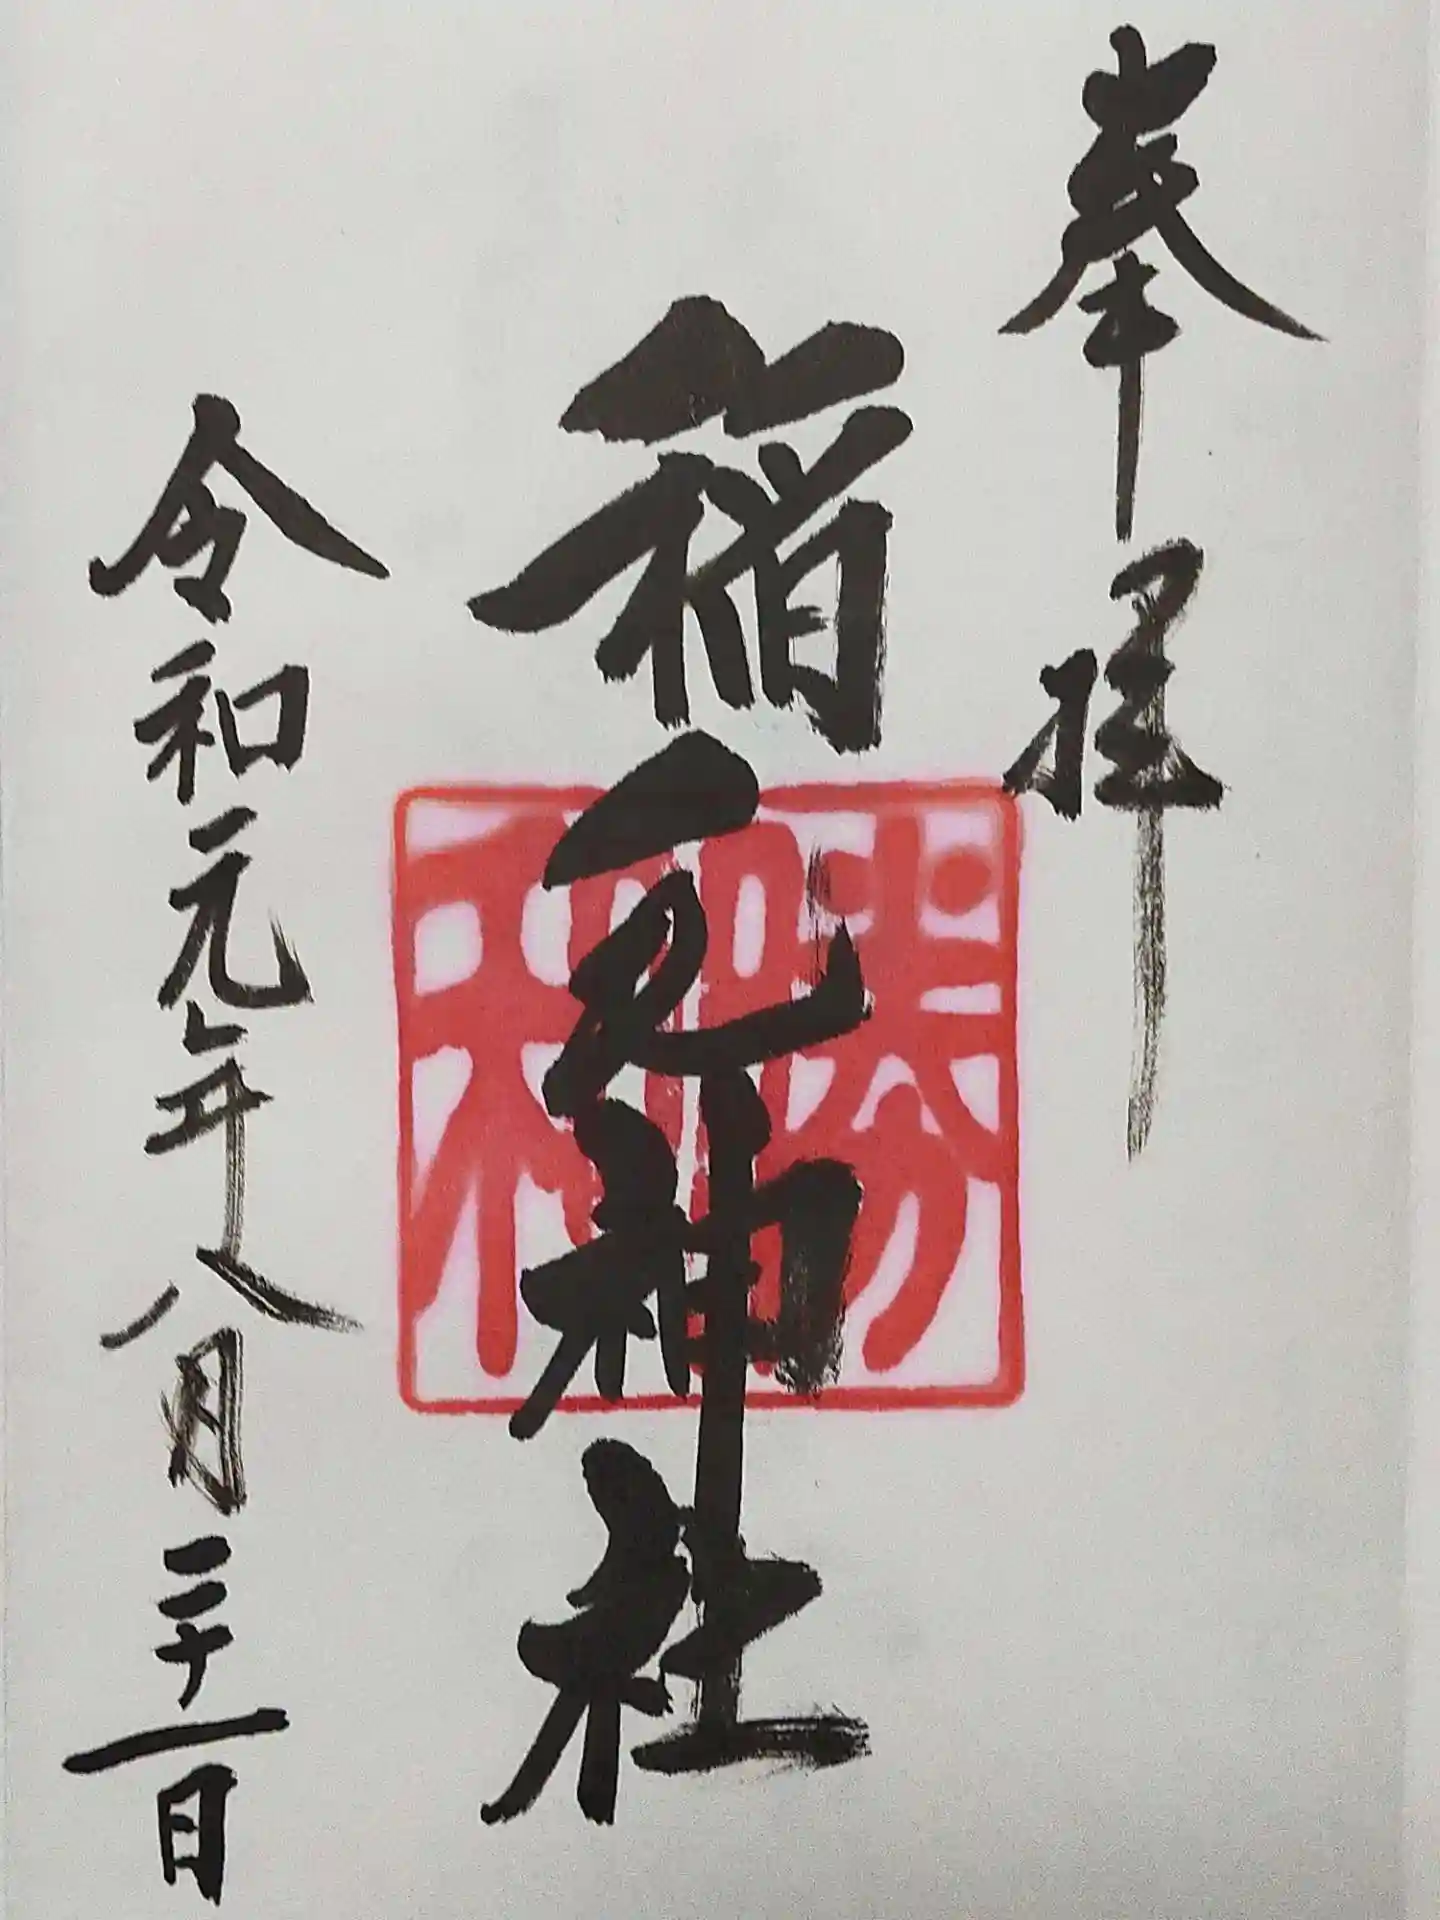 奉拝
稲毛神社
令和元年八月二十一日